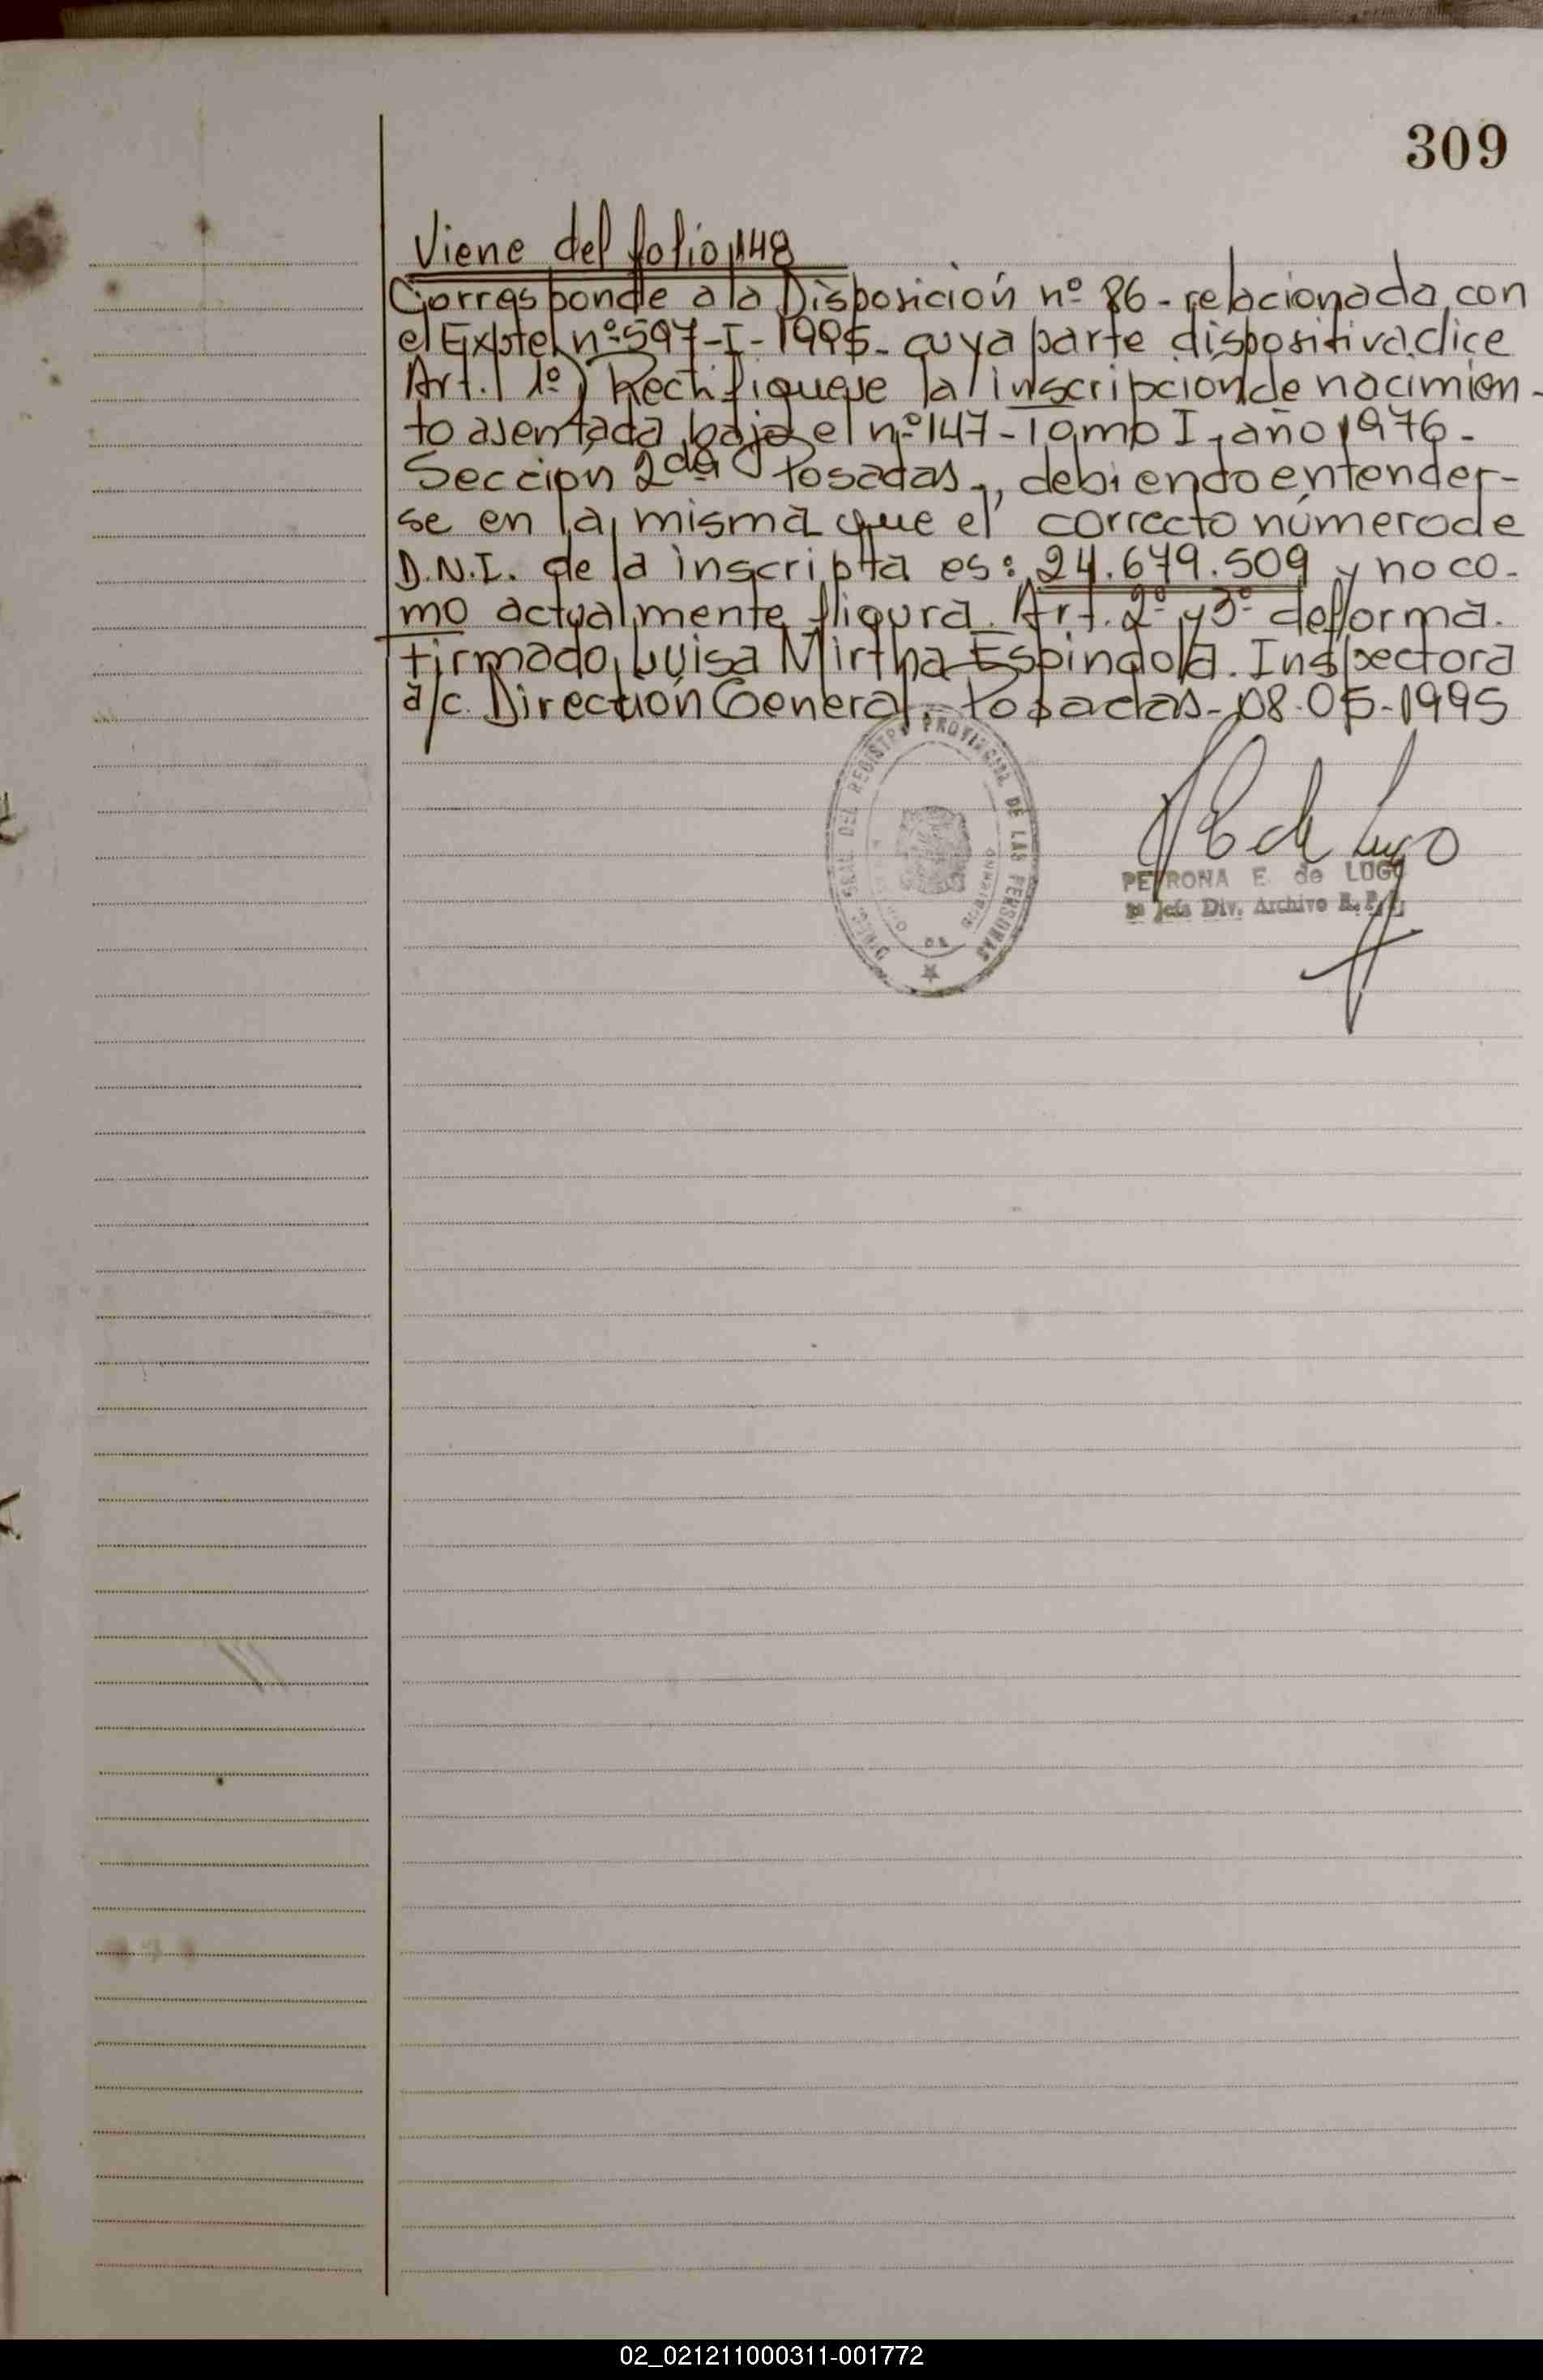 309
Viene del folio 148
Corresponde a la Disposición nº 86 - relacionada con
el Expte nº 597-I-1995- cuya parte dispositiva dice
Art. 1º) Rectifiquese la inscripcion de nacimien-
to asentada bajo el nº 147 - Tomo I - año 1976-
Sección 2da Posadas -, debiendo entender-
se en la misma que el correcto número de
D.N.I. de la inscripta es: 24.679.509 y no co-
mo actualmente figura. Art. 2º y 3º de forma.
Firmado Luisa Mirtha Espindola. Inspectora
a/c. Dirección General. Posadas - 08-05-1995
DIREC. GRAL. DEL REGISTRO PROVINCIAL DE LAS PERSONAS
PETRONA E. de LUGO
Jefa Div. Archivo R.P.
02_021211000311-001772